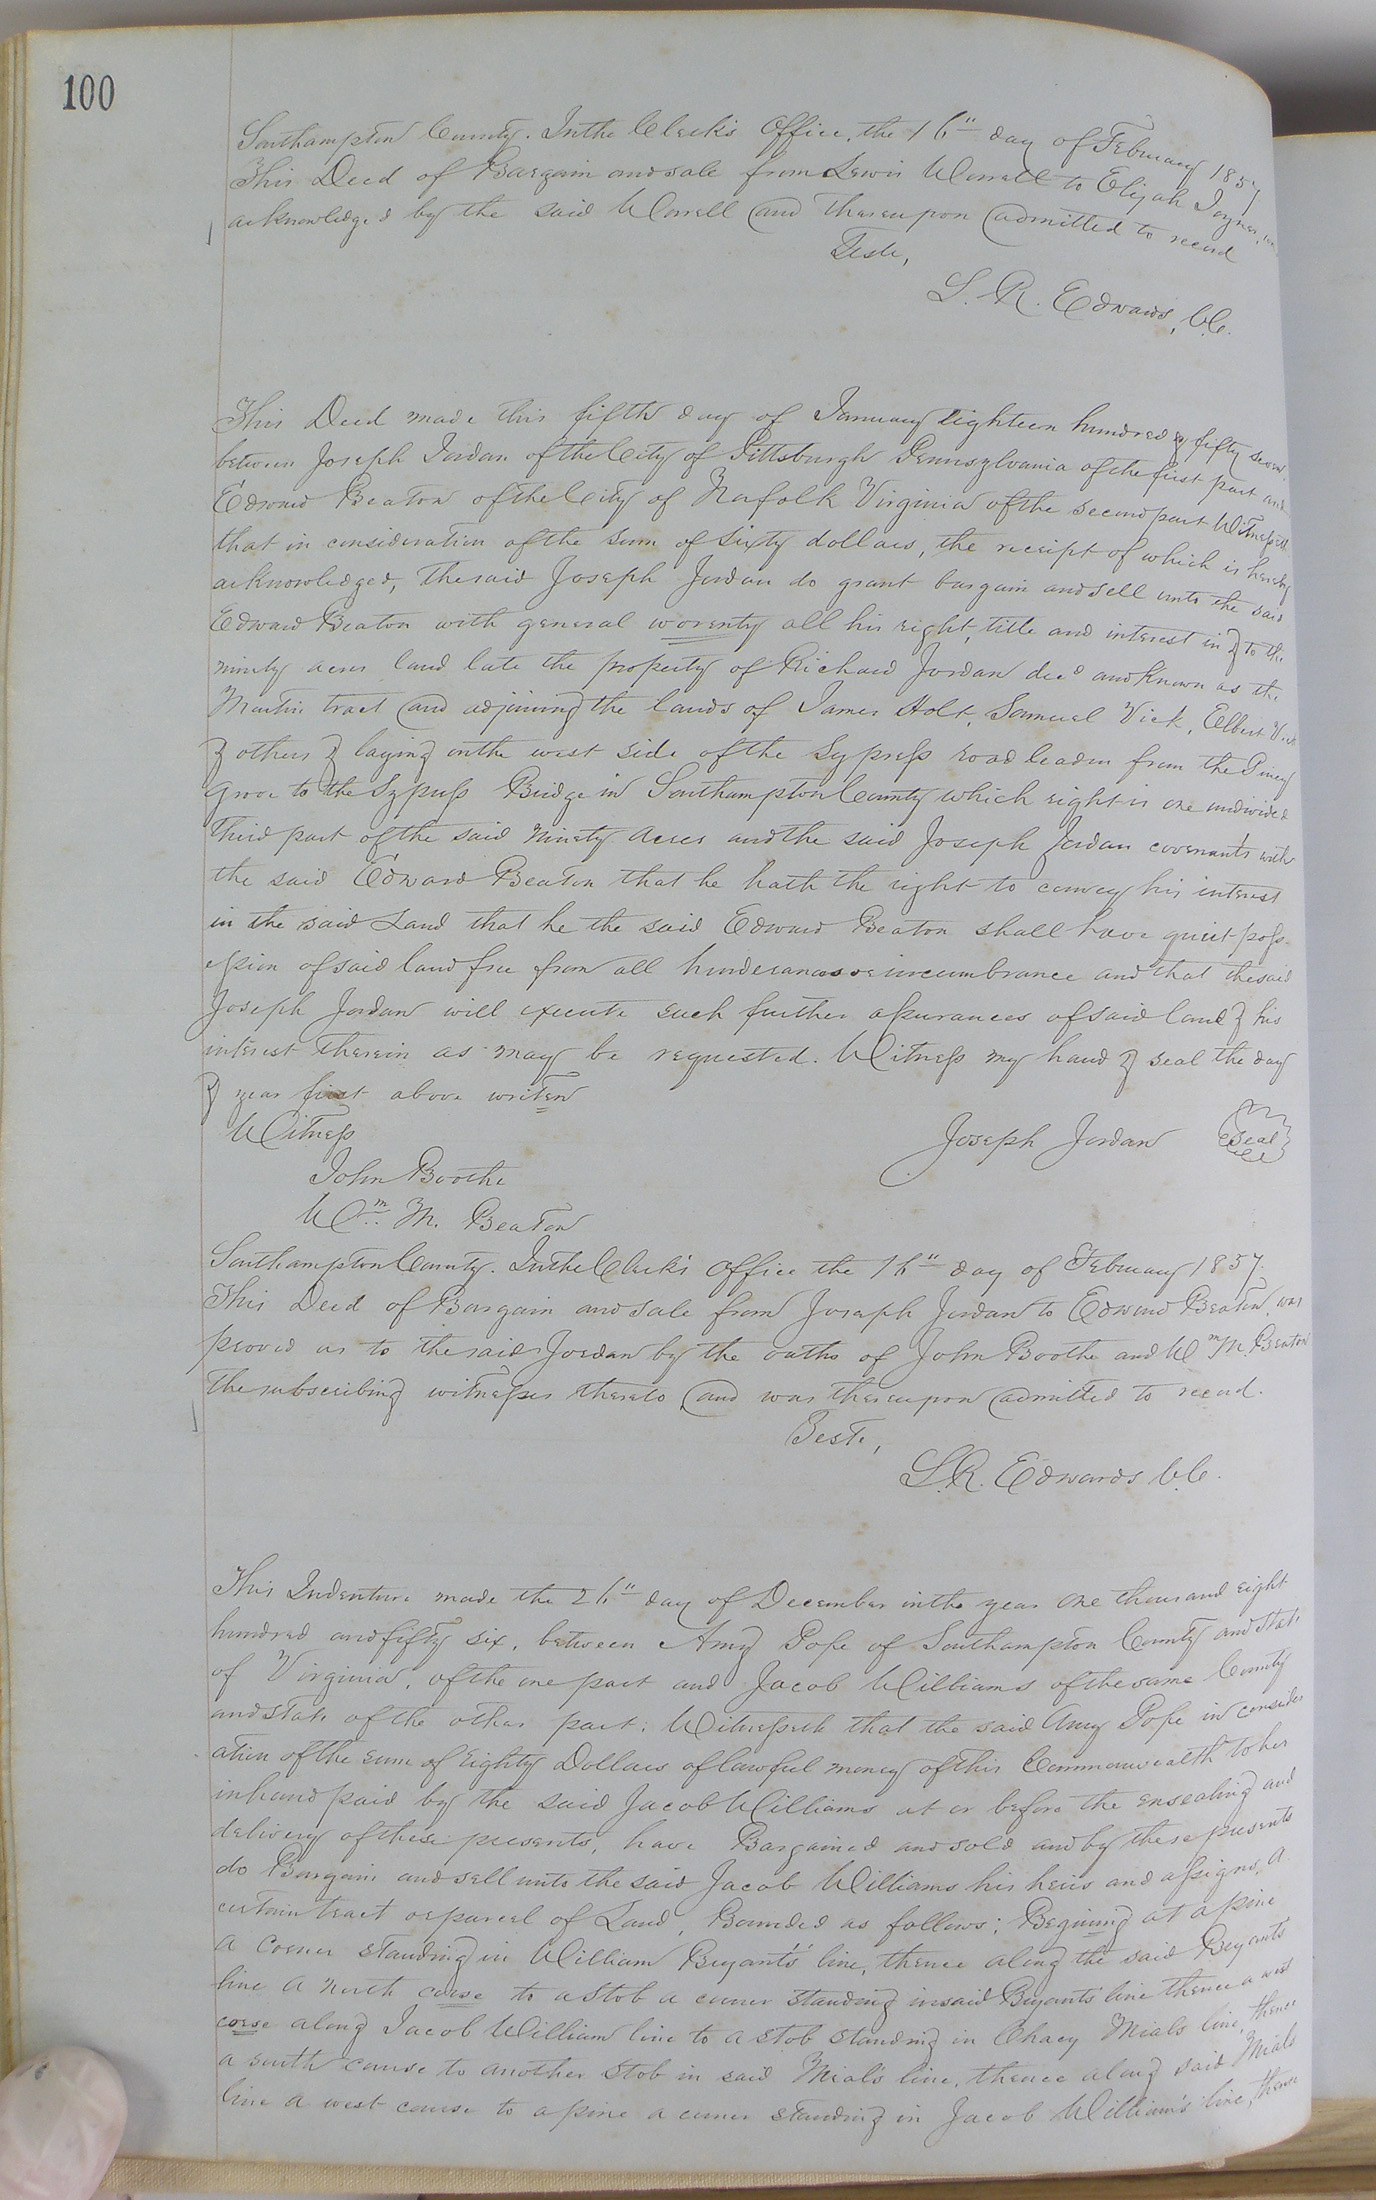 100
Southampton County. In the Clerk's Office, the 16" day of February 1857
This Deed of Bargain and sale from Lewis Worrell to Elijah Joyner, was
acknowledged by the said Worrell and thereupon admitted to record
Teste,
L. R. Edwards, C.C.
This Deed made this fifth day of January Eighteen hundred & fifty seven
between Joseph Jordan of the City of Pittsburgh Pennsylvania of the first part and
Edward Beaton of the City of Norfolk Virginia of the second part Witnesseth
that in consideration of the sum of sixty dollars, the receipt of which is hereby
acknowledged, the said Joseph Jordan do grant bargain and sell unto the said
Edward Beaton with general worenty all his right, title and interest in & to the
ninety acres land late the property of Richard Jordan decd and known as the
Martin tract and adjoining the lands of James Holt, Samuel Vick, Elbert Vick
& others & laying on the west side of the Sypress road leaden from the Piney
Grove to the Sypress Bridge in Southampton County which right is one undivided
third part of the said ninety acres and the said Joseph Jordan covenants with
the said Edward Beaton that he hath the right to convey his interest
in the said Land that he the said Edward Beaton shall have quiet poss-
ession of said land free from all hinderances or incumbrance and that the said
Joseph Jordan will execute such further assurances of said land & his
interest therein as may be requested. Witness my hand & seal the day
& year first above writen
Witness
Joseph Jordan Seal
John Boothe
Wm. M. Beaton
Southampton County. In the Clerk's Office the 16" day of February 1857.
This Deed of Bargain and sale from Joseph Jordan to Edward Beaton, was
proved as to the said Jordan by the oaths of John Boothe and Wm M. Beaton
the subscribing witnesses thereto and was thereupon admitted to record.
Teste,
L.R. Edwards C.C.
This Indenture made the 26" day of December in the year one thousand eight
hundred and fifty six, between Amy Pope of Southampton County and State
of Virginia, of the one part and Jacob Williams of the same County
and State of the other part: Witnesseth that the said Amy Pope in consider
ation of the sum of Eighty Dollars of lawful money of this Commonwealth to her
in hand paid by the said Jacob Williams at or before the ensealing and
delivery of these presents, have Bargained and sold and by these presents
do Bargain and sell unto the said Jacob Williams his heirs and assigns, a
certain tract or parcel of Land, Bounded as follows: Begining at a pine
a corner standing in William Bryant's line, thence along the said Bryants
line a north corse to a stob a corner standing in said Bryants line thence a west
corse along Jacob William line to a stob standing in Chacy Mials line, thence
a south course to another stob in said Mial's line, thence along said Mials
line a west course to a pine a corner standing in Jacob William's line, thence